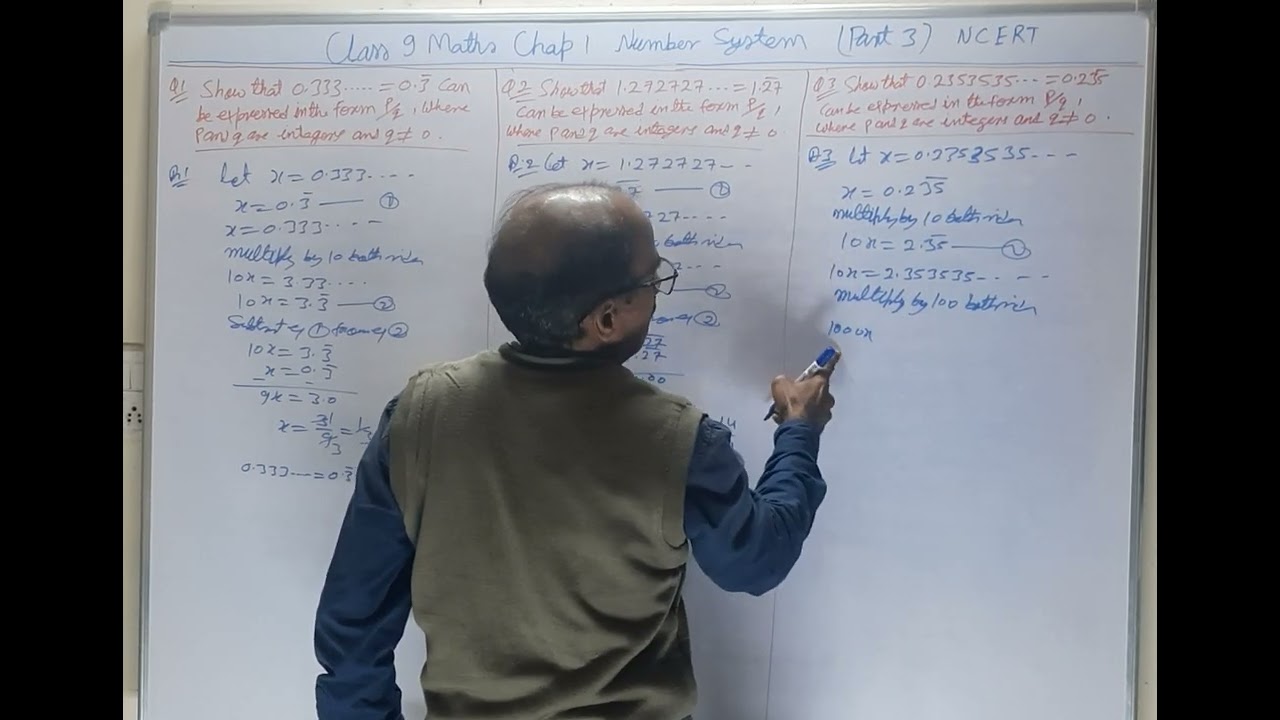 Class 9 Maths Chap 1 Number System (Part 3) NCERT
Q1 Show that 0.333..... = 0.3̅ Can
be expressed in the form P/q, Where
P and q are integers and q ≠ 0.
Q1 Let x = 0.333....
x = 0.3̅ — ①
x = 0.333....
multiply by 10 both sides
10x = 3.33....
10x = 3.3̅ — ②
Subtract eq ① from eq ②
10x = 3.3̅
- x = 0.3̅
9x = 3.0
x = 3/9 = 1/3
0.333.... = 0.3̅
Q2 Show that 1.272727... = 1.2̅7̅
Can be expressed in the form P/q,
Where P and q are integers and q ≠ 0.
Q.2 Let x = 1.272727--
7̅ — ①
727....
both sides
②
from eq ②
.2̅7̅
.2̅7̅
.00
14
Q3 Show that 0.2353535... = 0.23̅5̅
Can be expressed in the form P/q,
Where P and q are integers and q ≠ 0.
Q3 Let x = 0.2353535---
x = 0.23̅5̅
multiply by 10 both sides
10x = 2.3̅5̅ — ①
10x = 2.353535----
multiply by 100 both sides
1000x